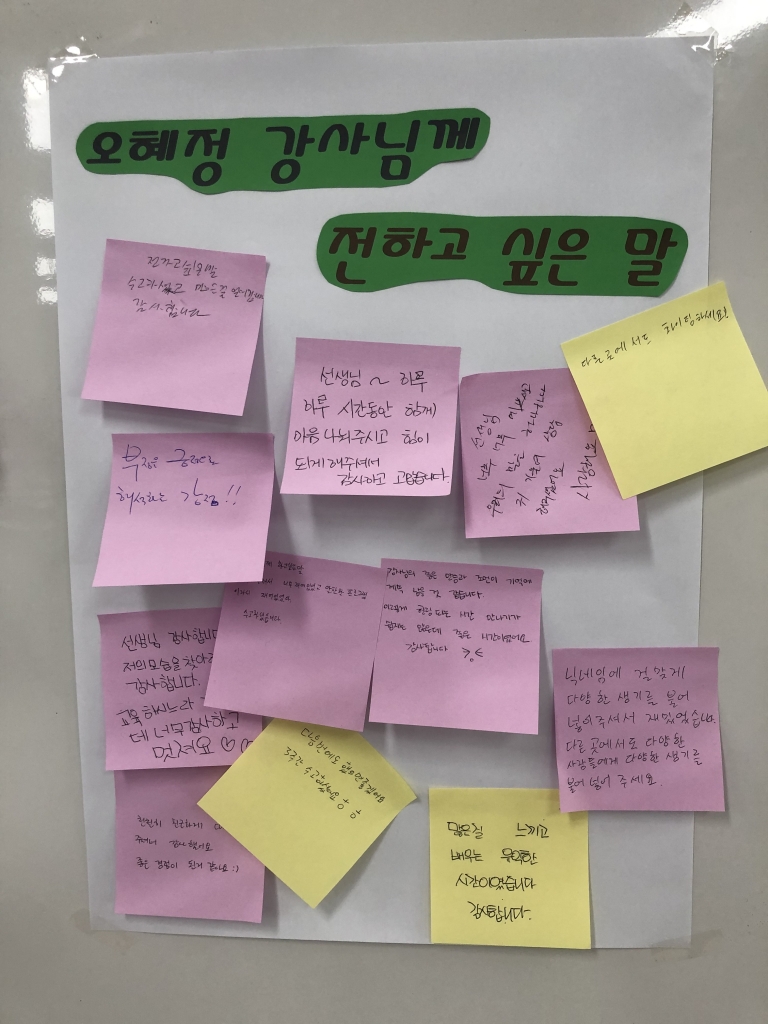 오혜정 강사님께
전하고 싶은 말
전하고싶은말
수고하셨고
감사합니다
선생님 ~ 하루
하루 시간동안 함께
마음 나눠주시고 힘이
되게 해주셔서
감사하고 고맙습니다.
다른곳에서도 화이팅하세요!
선생님
너무 너무 예쁘시고
우리의 말을 하나하나
귀 기울여 상담
해주셨어요
사랑해요
해석하는 강점!!
수고하셨습니다.
강사님의 깊은 인상과 조언이 기억에
계속 남을 것 같습니다.
이렇게 힐링되는 시간 만나기가
쉽지는 않은데 좋은 시간이였어요
감사합니다
선생님 감사합니
저의모습을찾아
감사합니다.
교육하시느라
데 너무감사하고
멋져요 ♡♡
닉네임에 걸맞게
다양한 생기를 불어
넣어주셔서 재밌었습니다.
다른 곳에서도 다양한
사람들에게 다양한 생기를
불어넣어 주세요.
다음번에도 왔으면좋겠어요
수고했어요
천천히 친근하게
감사했어요
좋은 경험이 된거 같아요 :)
많은걸 느끼고
배우는 유익한
시간이였습니다
감사합니다.